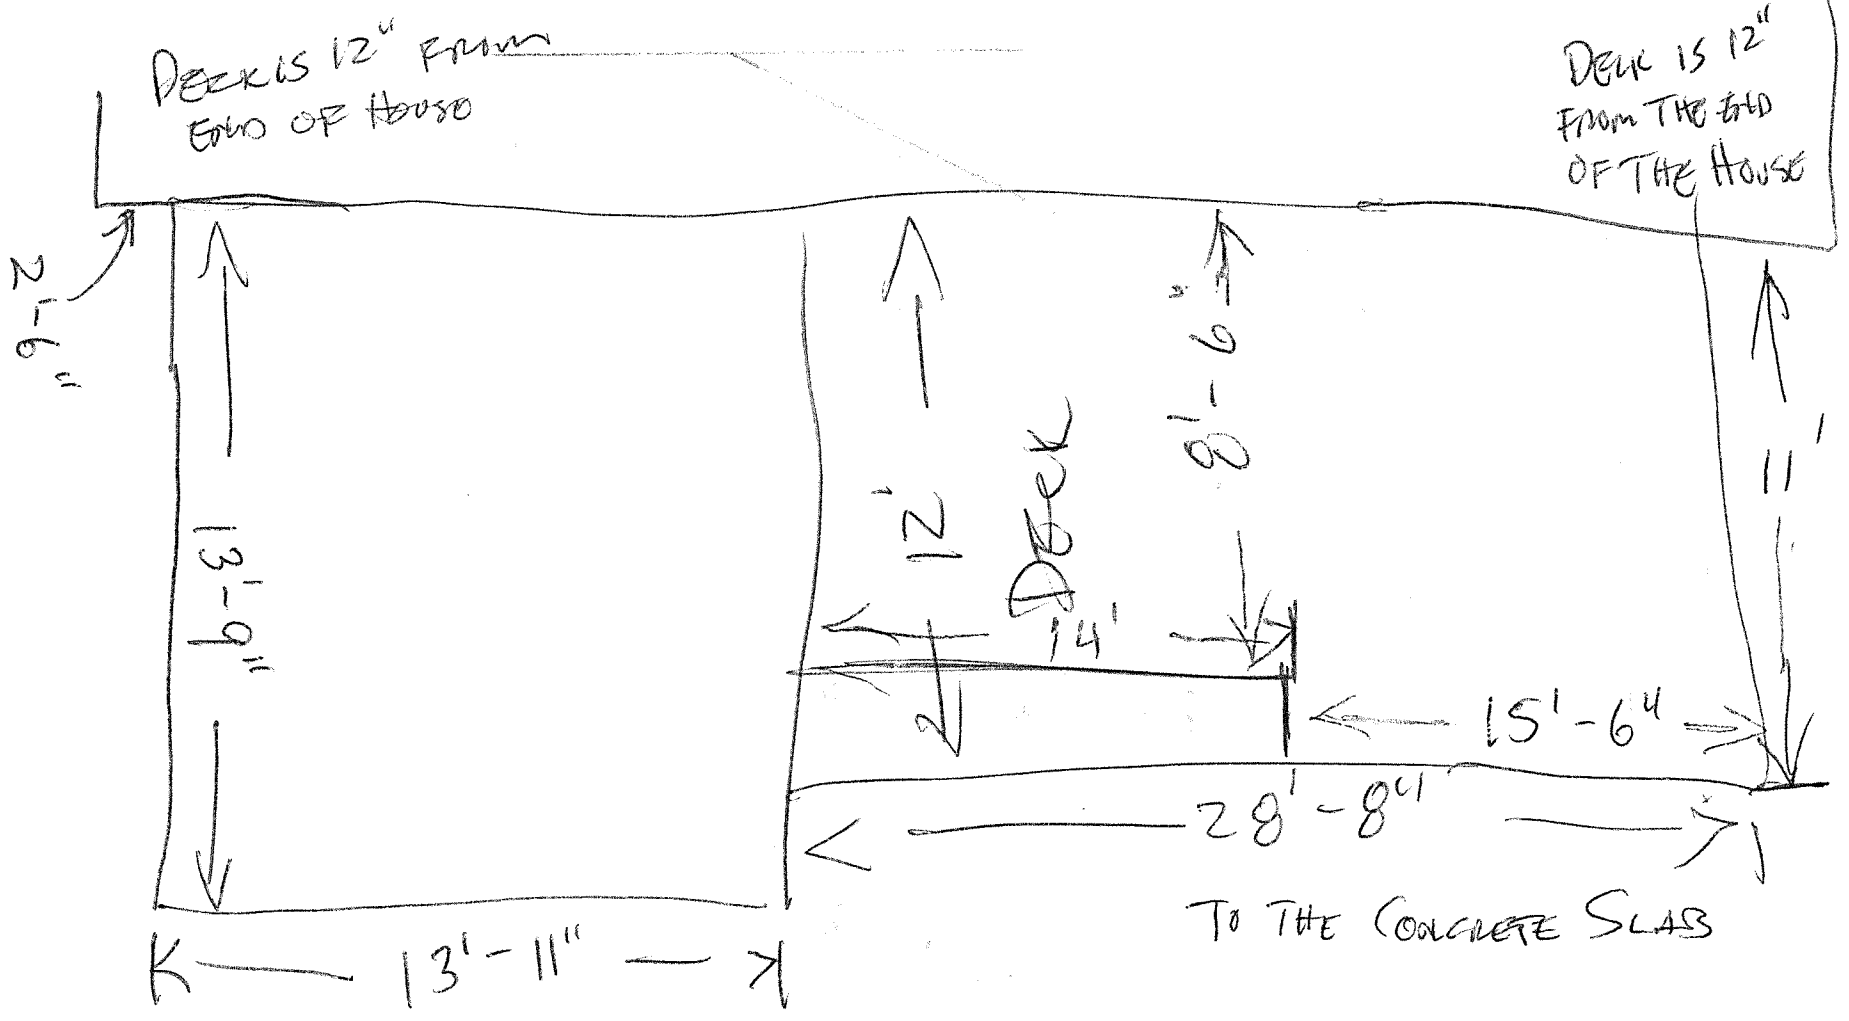 DECK IS 12" FROM
END OF HOUSE
DECK IS 12"
FROM THE END
OF THE HOUSE
2'-6"
13'-9"
12'
DECK
8'-6"
11'
14'
15'-6"
28'-8"
TO THE CONCRETE SLAB
13'-11"